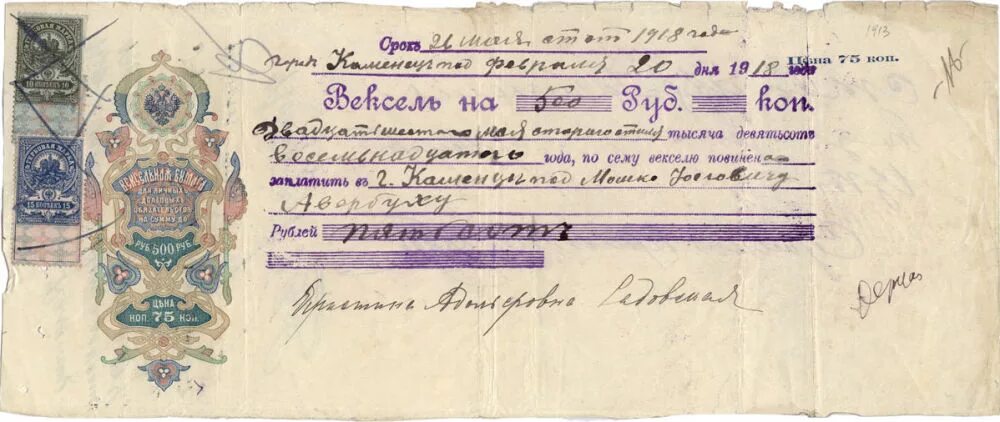 ГЕРБОВАЯ МАРКА
10 КОПѢЕКЪ 10
ГЕРБОВАЯ МАРКА
15 КОПѢЕКЪ 15
ВЕКСЕЛЬНАЯ БУМАГА
ДЛЯ ЛИЧНЫХЪ
ДОЛГОВЫХЪ
ОБЯЗАТЕЛЬСТВЪ
НА СУММУ ДО
РУБ. 500 РУБ.
ЦѢНА
КОП. 75 КОП.
Срокъ 26 мая ст ст 1918 года
Каменецъ под февраля 20 дня 1918 года
Цѣна 75 коп.
1913
Вексель на 500 Руб. коп.
Двадцать шестого мая старого стиля тысяча девятьсотъ
восемьнадцатого года, по сему векселю повинена
заплатить въ г. Каменцы под Мошко Іосеовичу
Авербуху
Рублей пятьсотъ
Адольфовна Садовская